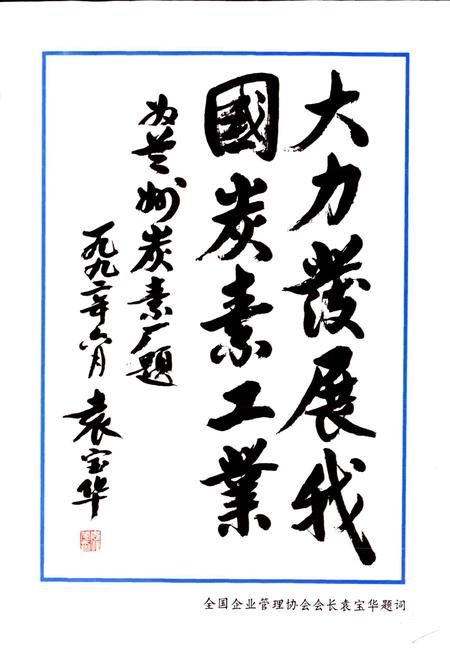 大力發展我
國炭素工業
为兰州炭素厂题
一九九二年六月
袁宝华
全国企业管理协会会长袁宝华题词